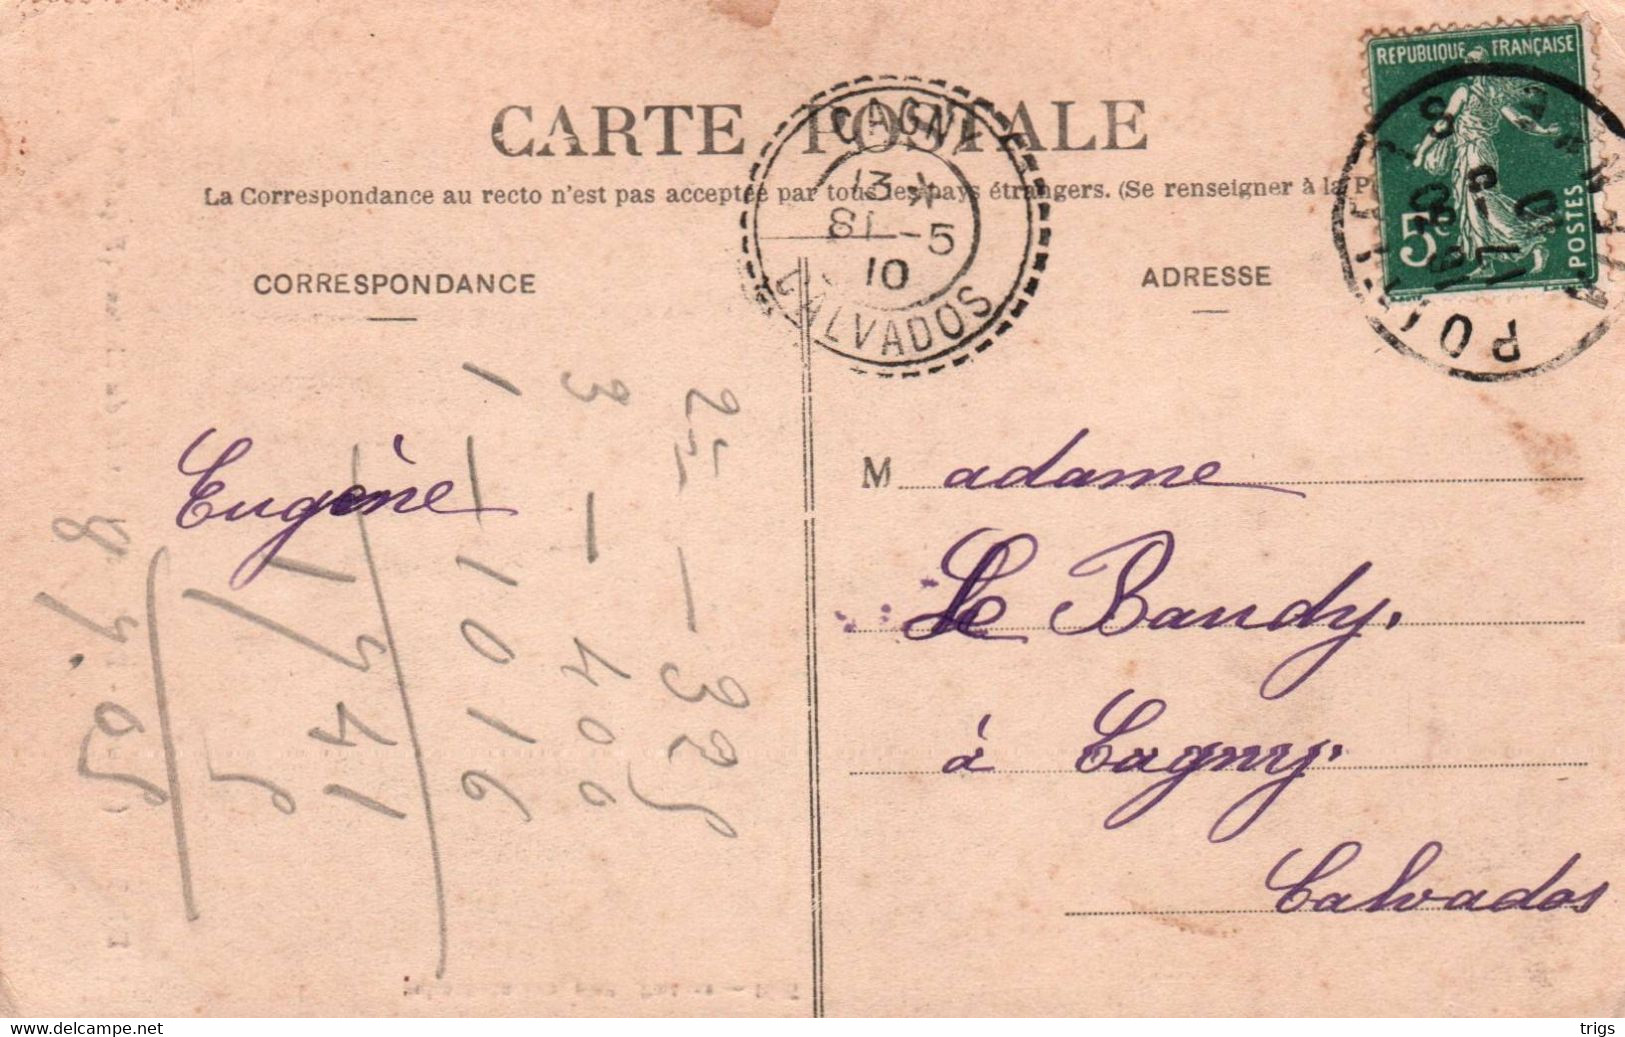 REPUBLIQUE FRANÇAISE
5c
POSTES
CARTE POSTALE
CAGNY
13 *
81 -5
10
CALVADOS
La Correspondance au recto n'est pas acceptée par tous les pays étrangers. (Se renseigner à la
CORRESPONDANCE
ADRESSE
Eugène
Madame
Le Baudy.
à Cagny.
Calvados
25 - 325
3 - 400
1 - 1016
delcampe.net
trigs